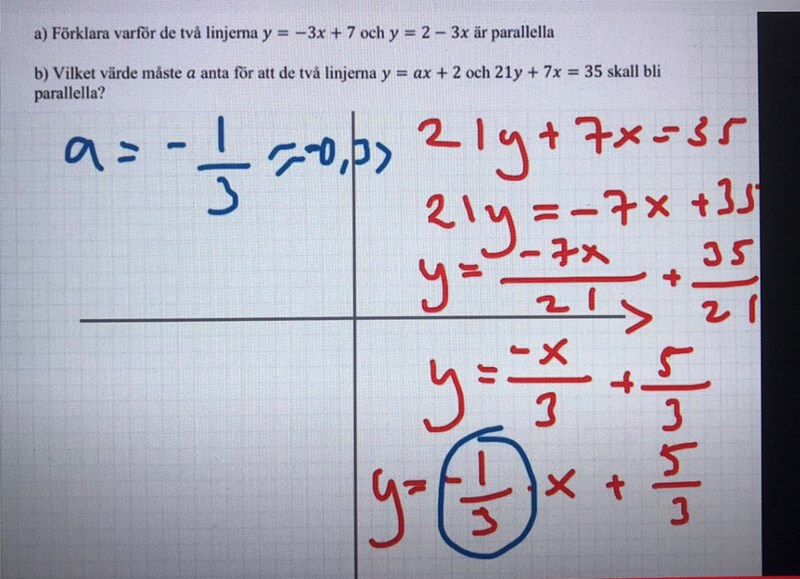 a) Förklara varför de två linjerna y = −3x + 7 och y = 2 − 3x är parallella
b) Vilket värde måste a anta för att de två linjerna y = ax + 2 och 21y + 7x = 35 skall bli
parallella?
a = - 1/3 ≈ -0,33
21y + 7x = 35
21y = -7x + 35
y = -7x/21 + 35/21
y = -x/3 + 5/3
y = -1/3 · x + 5/3